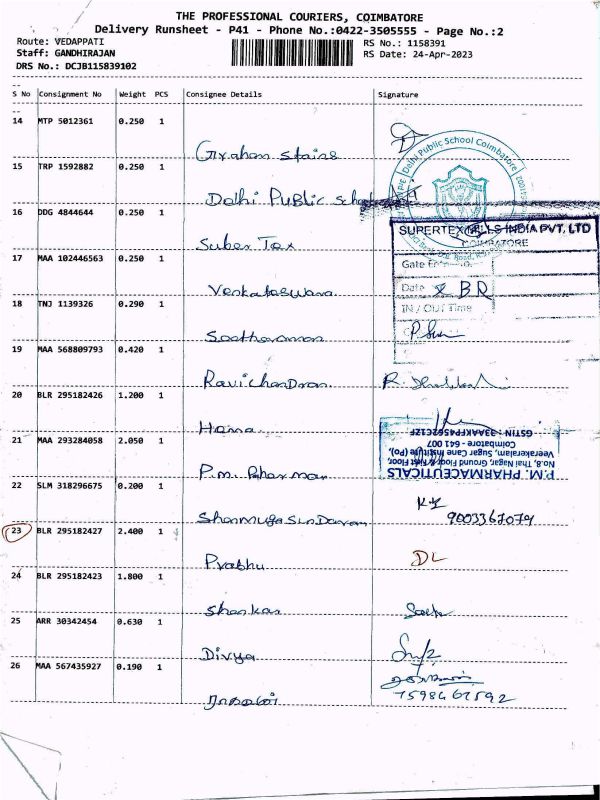 THE PROFESSIONAL COURIERS, COIMBATORE
Delivery Runsheet - P41 - Phone No.:0422-3505555 - Page No.:2
Route: VEDAPPATI
Staff: GANDHIRAJAN
DRS No.: DCJB115839102
RS No.: 1158391
RS Date: 24-Apr-2023
S No Consignment No Weight PCS Consignee Details Signature
14 MTP 5012361 0.250 1
Graham Stains
15 TRP 1592882 0.250 1
Delhi Public School
Delhi Public School Coimbatore
16 DDG 4844644 0.250 1
Suber Tex
SUPERTEX MILLS INDIA PVT. LTD
COIMBATORE
17 MAA 102446563 0.250 1
Gate
Date BR
Venkateswara
IN / OUT Time
18 TNJ 1139326 0.290 1
Seetharaman
19 MAA 568809793 0.420 1
Ravichandran
R.
20 BLR 295182426 1.200 1
Hama
21 MAA 293284058 2.050 1
P.M. PHARMACEUTICALS
No.8, Thai Nagar, Ground Floor & First Floor,
Veerakeralam, Sugar Cane Institute (Po),
Coimbatore - 641 007
GSTIN : 33AAKFP4562C1ZF
P.m. Pharmar
22 SLM 318296675 0.200 1
Shanmuga SunDaram
9003367079
23 BLR 295182427 2.400 1
Prabhu
DL
24 BLR 295182423 1.800 1
Shankar
25 ARR 30342454 0.630 1
Divya
26 MAA 567435927 0.190 1
7598467592